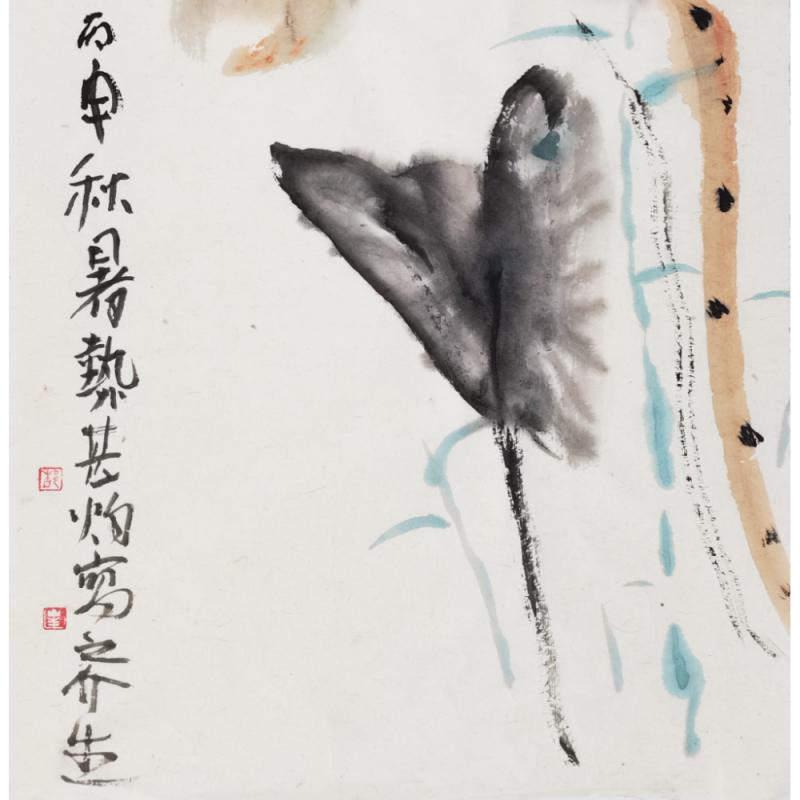 丙申秋暑熱甚灼寫之介生